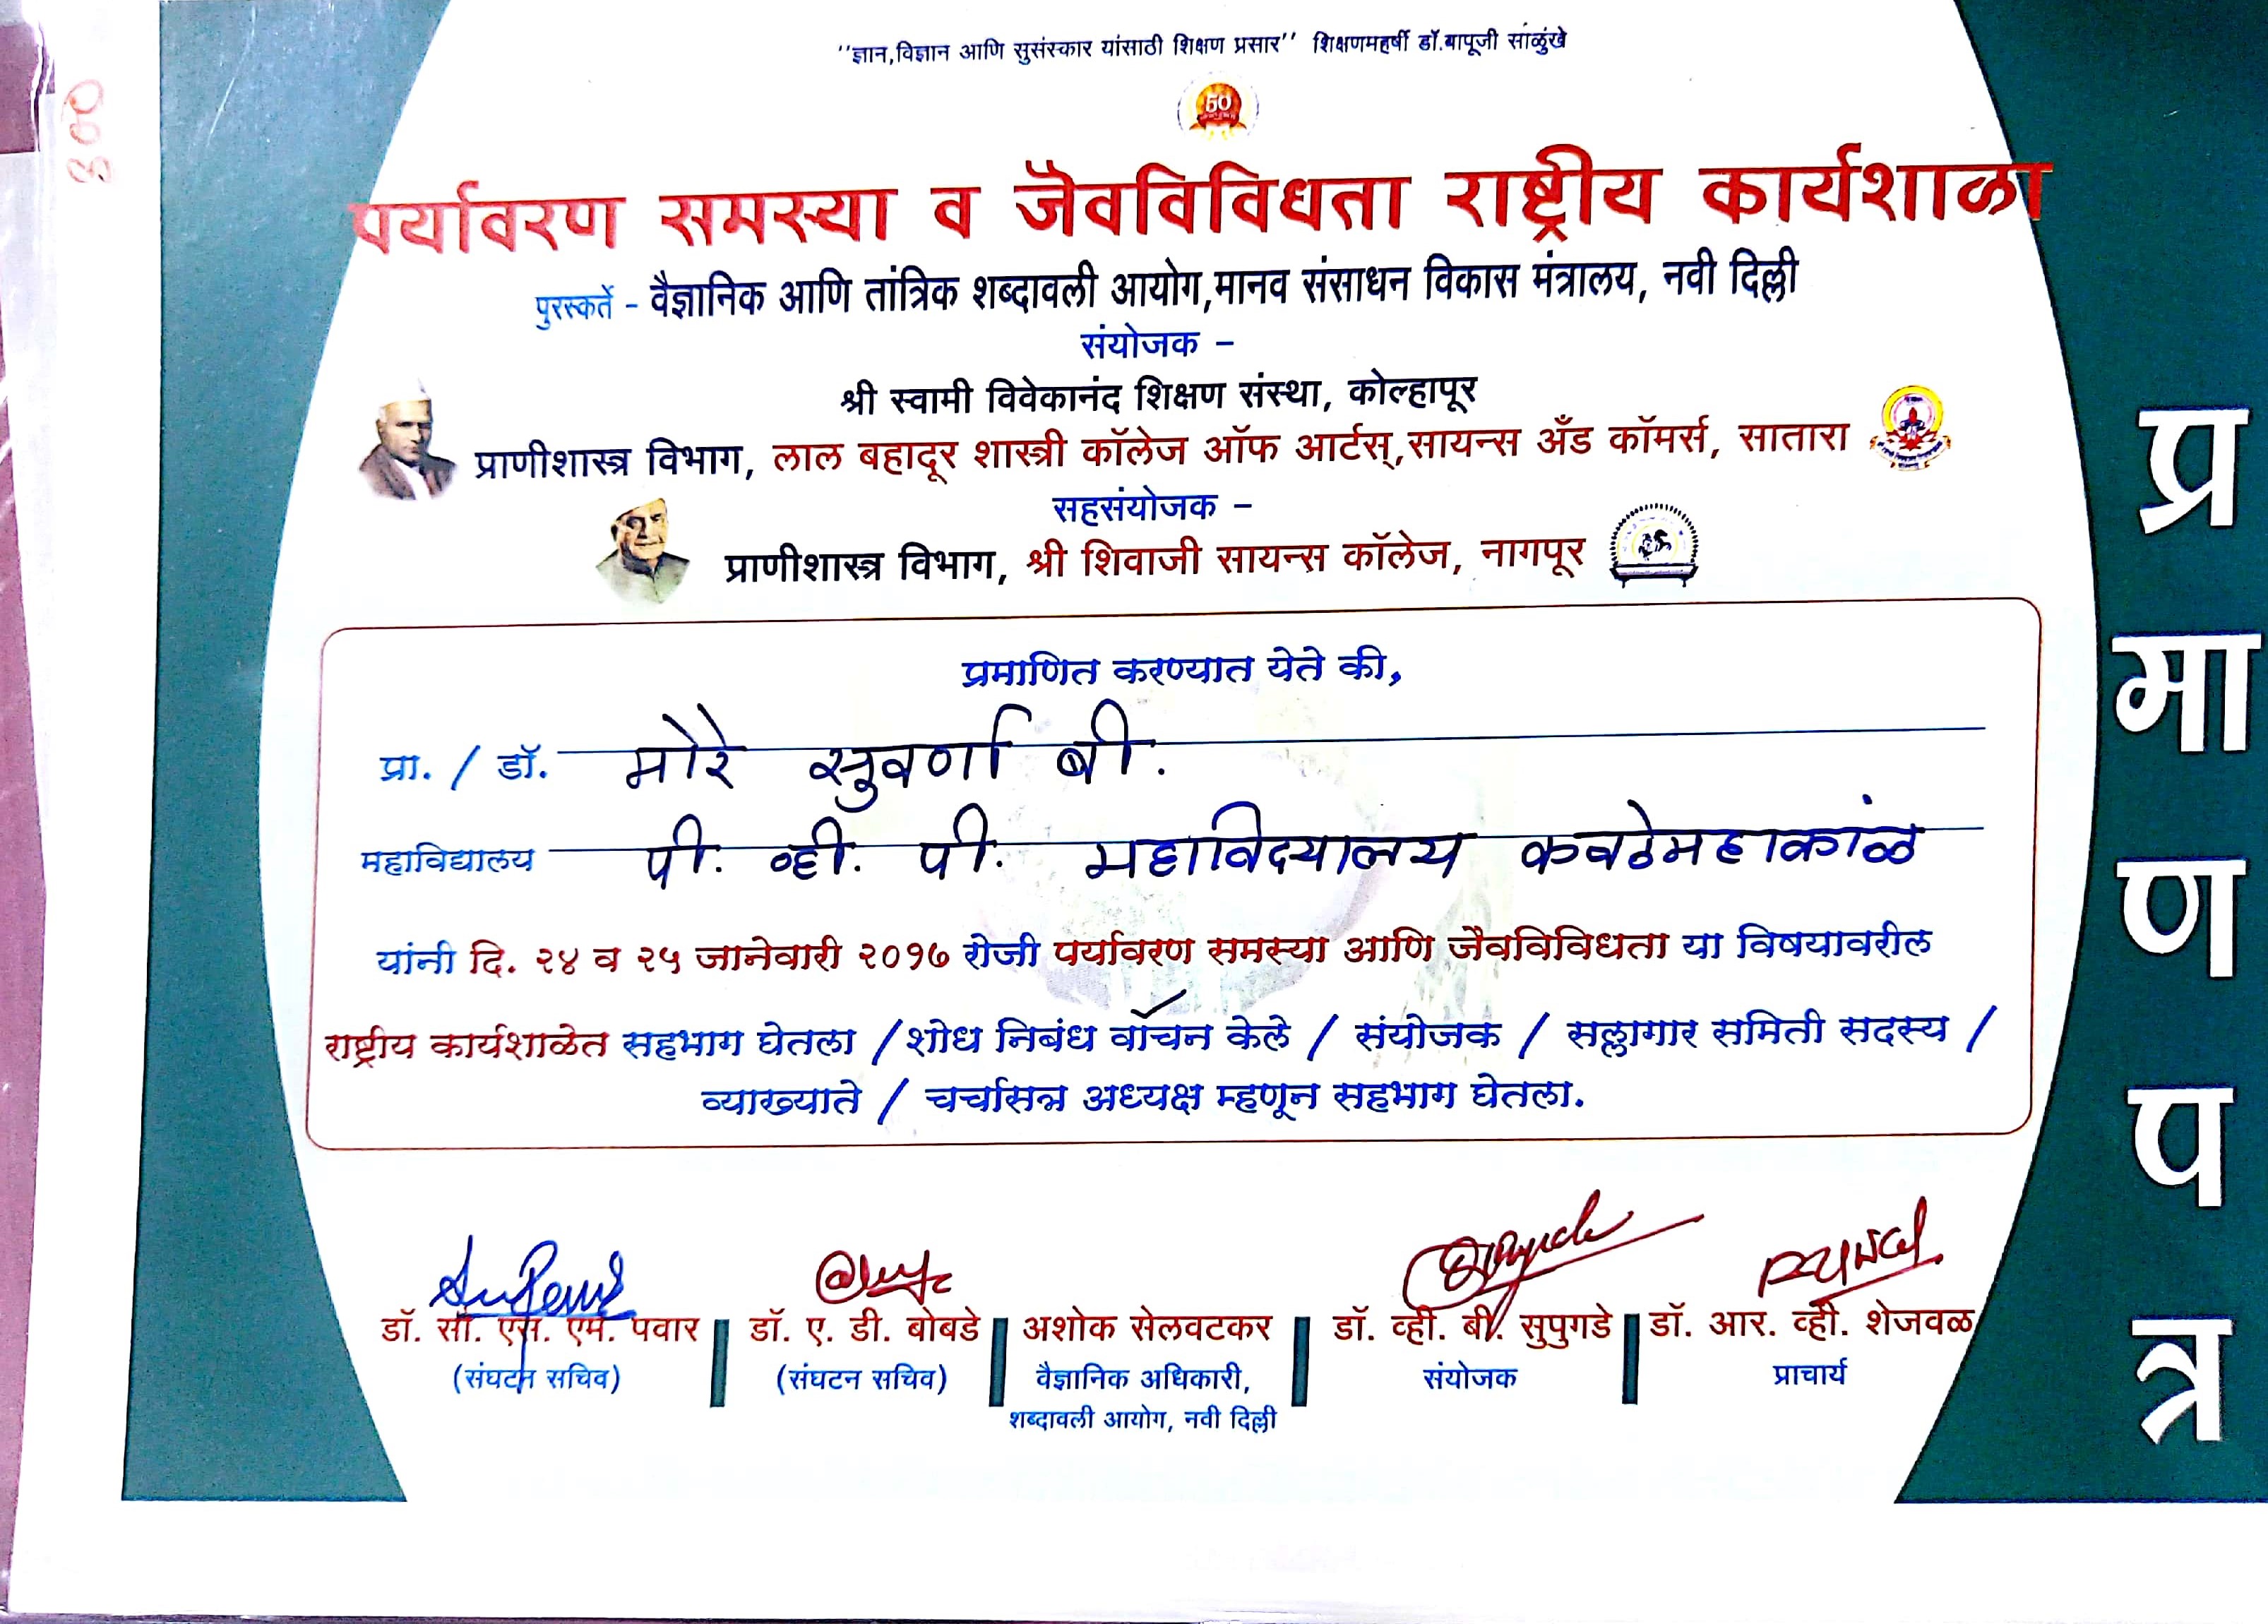 ''ज्ञान,विज्ञान आणि सुसंस्कार यांसाठी शिक्षण प्रसार'' शिक्षणमहर्षी डॉ.बापूजी साळुंखे
50
300
पर्यावरण समस्या व जैवविविधता राष्ट्रीय कार्यशाळा
पुरस्कर्ते - वैज्ञानिक आणि तांत्रिक शब्दावली आयोग,मानव संसाधन विकास मंत्रालय, नवी दिल्ली
संयोजक -
श्री स्वामी विवेकानंद शिक्षण संस्था, कोल्हापूर
प्राणीशास्त्र विभाग, लाल बहादूर शास्त्री कॉलेज ऑफ आर्टस्,सायन्स अँड कॉमर्स, सातारा
सहसंयोजक -
प्राणीशास्त्र विभाग, श्री शिवाजी सायन्स कॉलेज, नागपूर
प्रमाणित करण्यात येते की,
प्रा. / डॉ. मोरे सुवर्णा बी.
महाविद्यालय पी. व्ही. पी. महाविद्यालय कवठेमहाकांळ
यांनी दि. २४ व २५ जानेवारी २०१७ रोजी पर्यावरण समस्या आणि जैवविविधता या विषयावरील
राष्ट्रीय कार्यशाळेत सहभाग घेतला / शोध निबंध वाचन केले / संयोजक / सल्लागार समिती सदस्य /
व्याख्याते / चर्चासत्र अध्यक्ष म्हणून सहभाग घेतला.
डॉ. सौ. एस. एम. पवार
(संघटन सचिव)
डॉ. ए. डी. बोबडे
(संघटन सचिव)
अशोक सेलवटकर
वैज्ञानिक अधिकारी,
शब्दावली आयोग, नवी दिल्ली
डॉ. व्ही. बी. सुपुगडे
संयोजक
डॉ. आर. व्ही. शेजवळ
प्राचार्य
प्रमाणपत्र